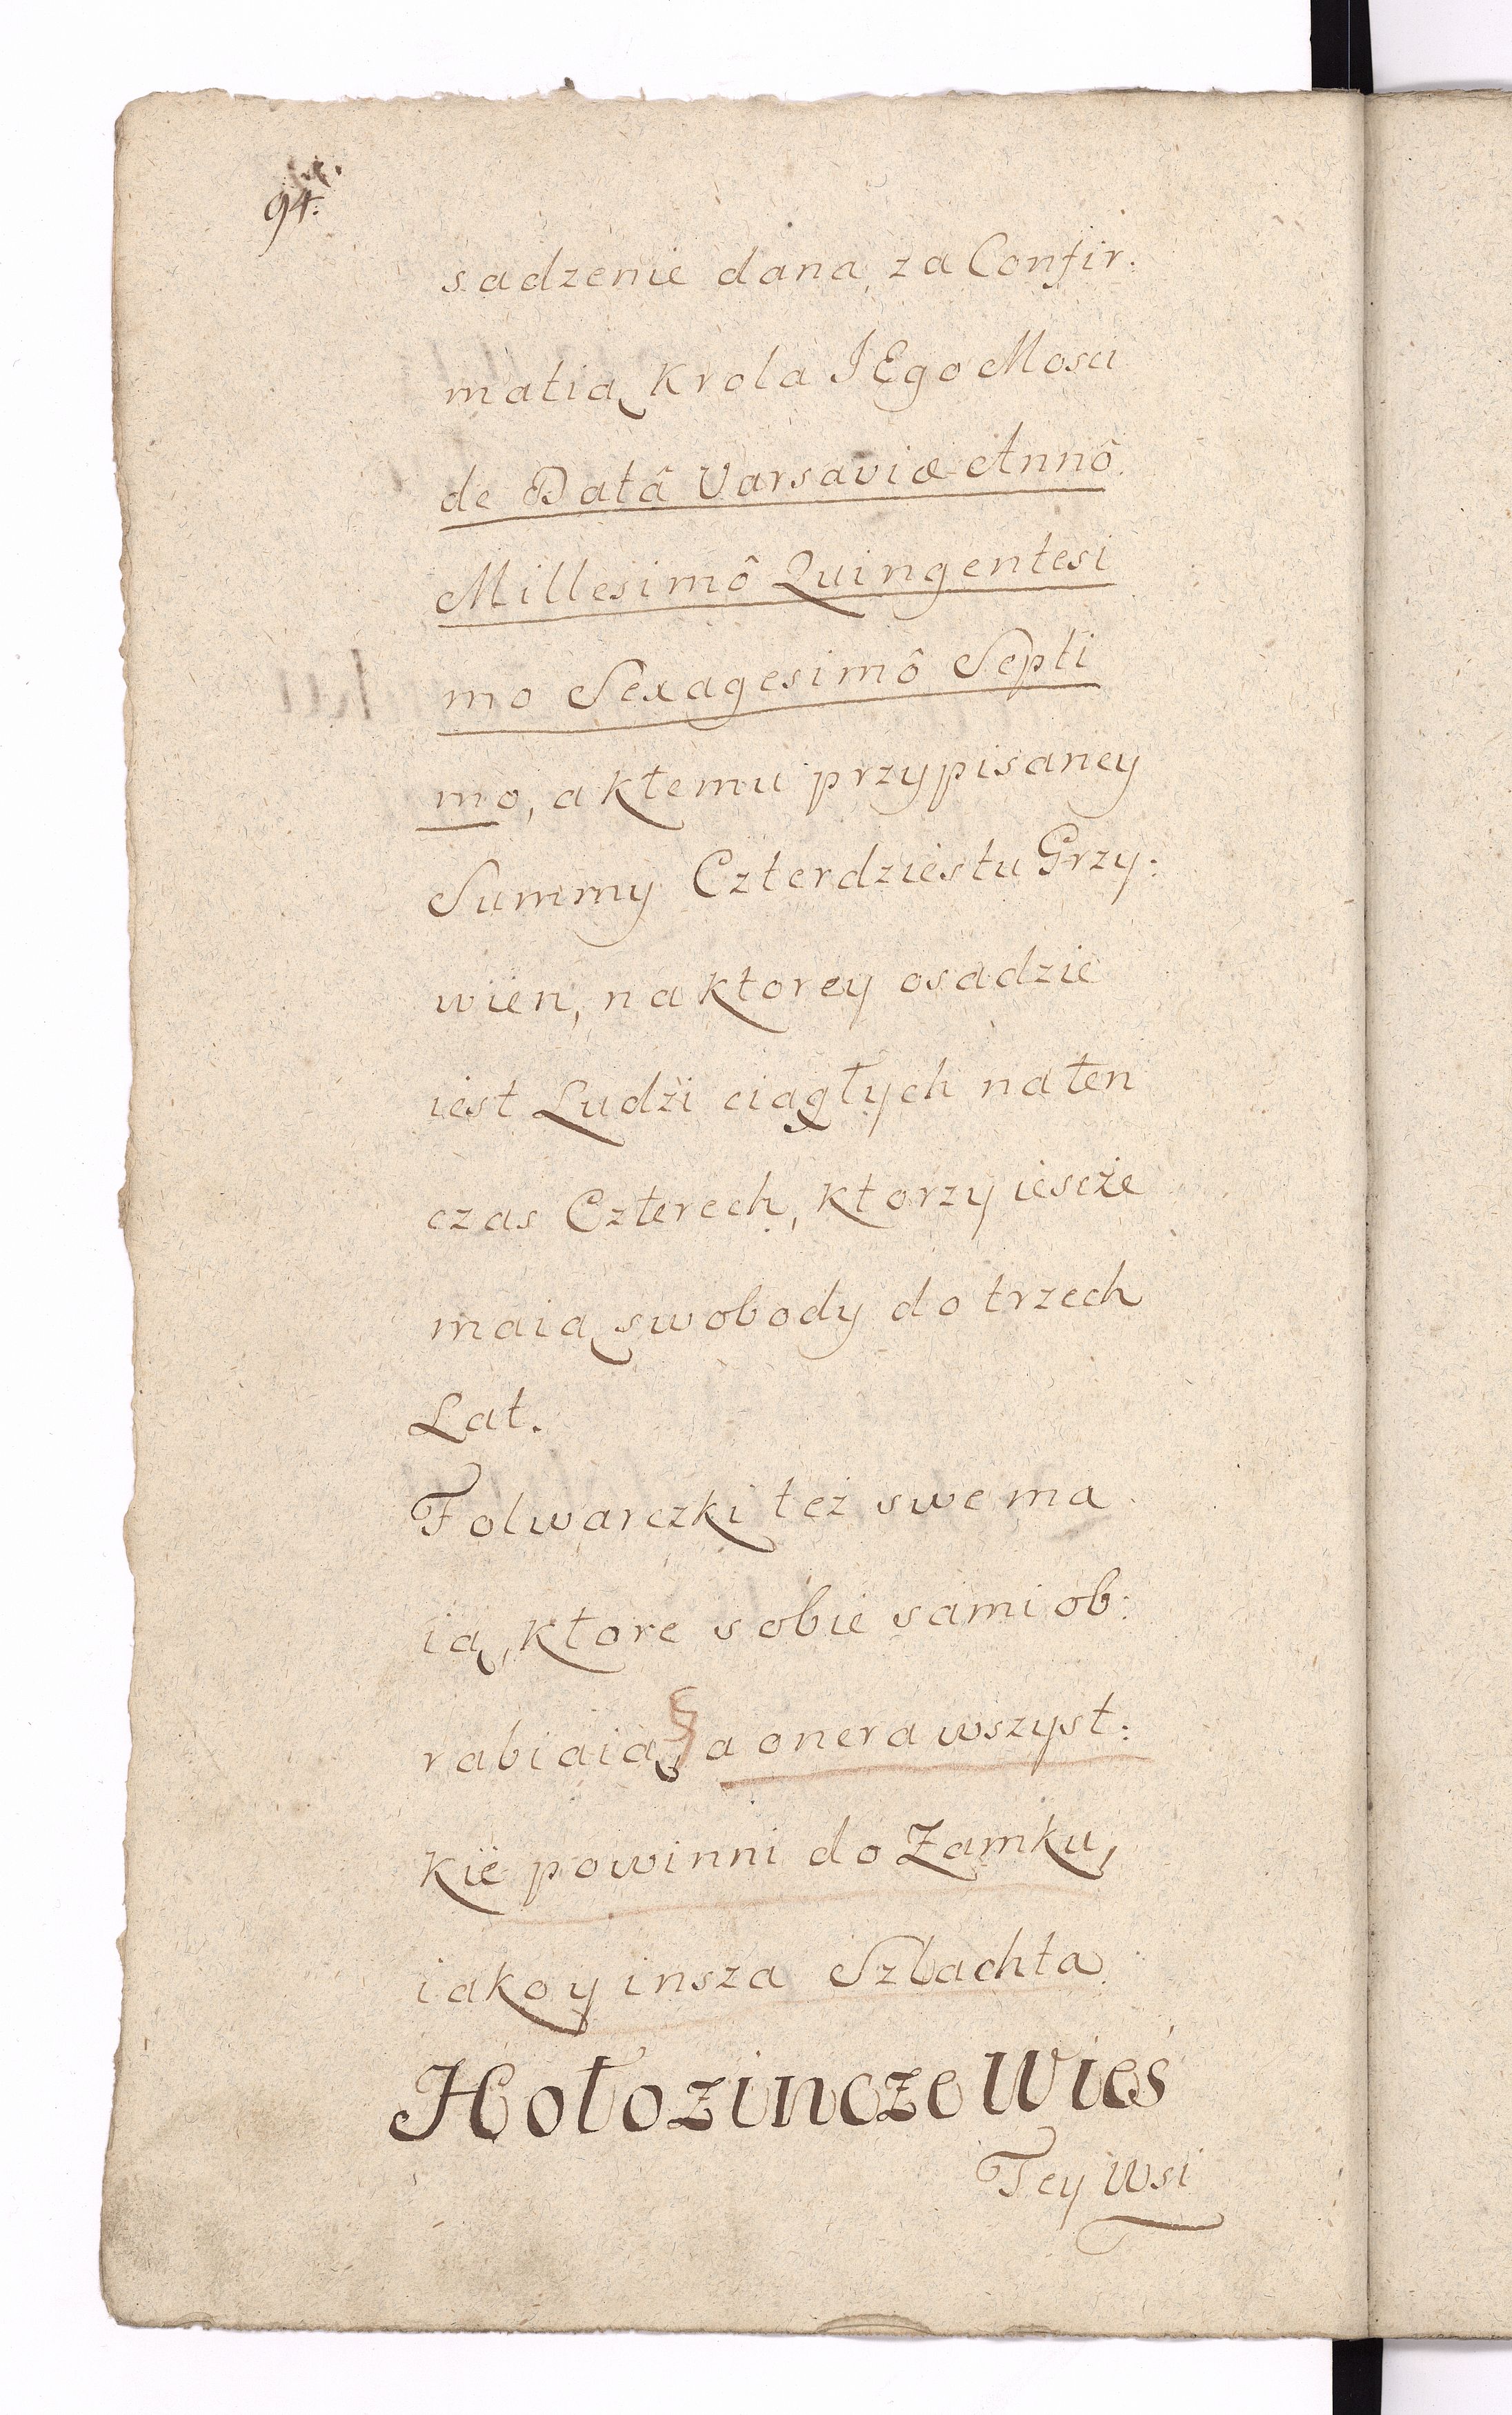 94.
sadzenie dana, za Confir:
matią Krola JEgo Mosci
de Datâ Varsaviæ Annô
Millesimô Quingentesi
mo Sexagesimô Septi
mo, a ktemu przypisaney
Summy Czterdziestu Grzy:
wien, na ktorey osadzie
iest Ludzi ciągłych na ten
czas Czterech, ktorzy iescże
maią swobody do trzech
Lat.
Folwarczki też swe ma
ią, ktore sobie sami ob:
rabiaią, a onera wszyst:
kie powinni do Zamku,
iako y insza Szlachta.
Hołozincze Wieś
Tey Wsi